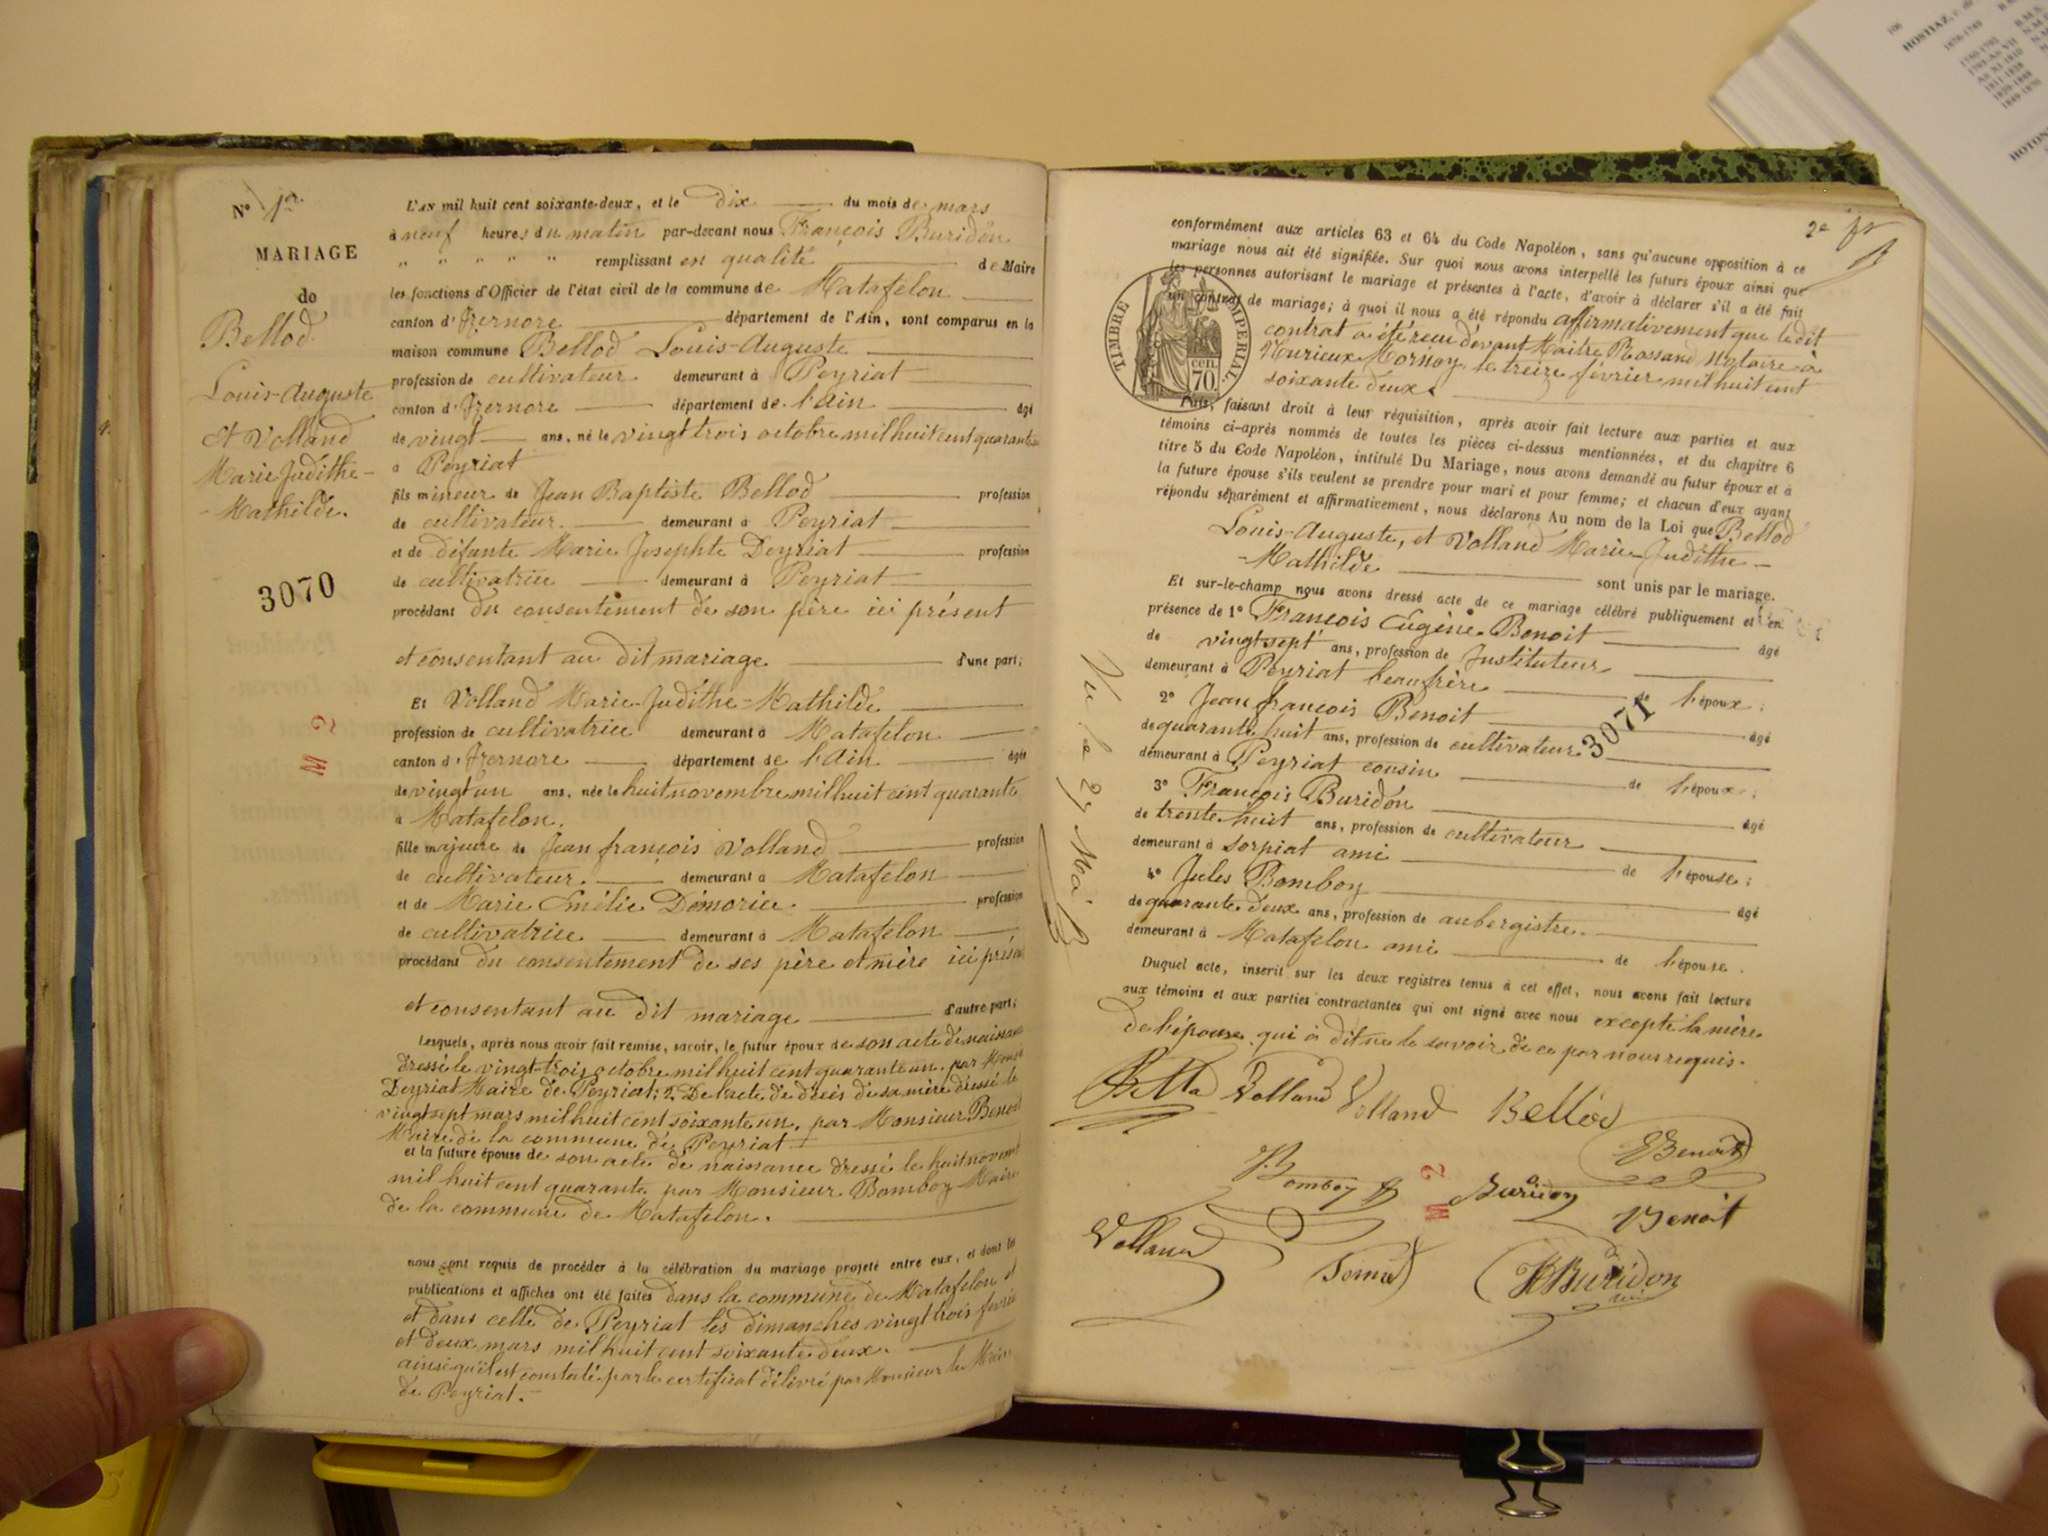 N° 1er
MARIAGE
de
Bellod
Louis-Auguste
et Volland
Marie Judithe-
-Mathilde.
3070
M 2
L'AN mil huit cent soixante-deux, et le dix du mois de mars
à neuf heures du matin par-devant nous François Buridon
" " " " " remplissant en qualité de Maire
les fonctions d'Officier de l'état civil de la commune de Matafelon
canton d'Izernore département de l'Ain, sont comparus en la
maison commune Bellod Louis-Auguste
profession de cultivateur demeurant à Peyriat
canton d'Izernore département de l'Ain âgé
de vingt ans, né le vingt trois octobre mil huit cent quarante
à Peyriat
fils mineur de Jean Baptiste Bellod profession
de cultivateur. demeurant à Peyriat
et de défunte Marie Josephte Deyriat profession
de cultivatrice demeurant à Peyriat
procédant du consentement de son père ici présent
et consentant au dit mariage d'une part;
Et Volland Marie-Judithe-Mathilde
profession de cultivatrice demeurant à Matafelon
canton d'Izernore département de l'Ain âgée
de vingt un ans, née le huit novembre mil huit cent quarante
à Matafelon.
fille majeure de Jean françois Volland profession
de cultivateur. demeurant à Matafelon
et de Marie Emélie Démorice profession
de cultivatrice demeurant à Matafelon
procédant du consentement de ses père et mère ici présen
et consentant au dit mariage d'autre part;
Lesquels, après nous avoir fait remise, savoir, le futur époux de son acte de naissance
dressé le vingt-trois octobre mil huit cent quarante un, par Monsr
Deyriat Maire de Peyriat; 2. De l'acte de décès de sa mère dressé le
vingt sept mars mil huit cent soixante un, par Monsieur Benoit
Maire de la commune de Peyriat
et la future épouse de son acte de naissance dressé le huit novem
mil huit cent quarante par Monsieur Bomboy Maire
de la commune de Matafelon.
nous ont requis de procéder à la célébration du mariage projeté entre eux, et dont les
publications et affiches ont été faites dans la commune de Matafelon et
et dans celle de Peyriat les dimanches vingt trois fevrie
et deux mars mil huit cent soixante deux.
ainsi qu'il est constaté par le certificat délivré par Monsieur le Maire
de Peyriat.
2e
conformément aux articles 63 et 64 du Code Napoléon, sans qu'aucune opposition à ce
mariage nous ait été signifiée. Sur quoi nous avons interpellé les futurs époux ainsi que
les personnes autorisant le mariage et présentes à l'acte, d'avoir à déclarer s'il a été fait
un contrat de mariage; à quoi il nous a été répondu affirmativement que le dit
contrat a été reçu devant Maître Rossand Notaire à
Nurieux-Mornay le treize février mil huit cent
soixante deux.
TIMBRE IMPERIAL.
cen. 70
Puis, faisant droit à leur réquisition, après avoir fait lecture aux parties et aux
témoins ci-après nommés de toutes les pièces ci-dessus mentionnées, et du chapitre 6
titre 5 du Code Napoléon, intitulé Du Mariage, nous avons demandé au futur époux et à
la future épouse s'ils veulent se prendre pour mari et pour femme; et chacun d'eux ayant
répondu séparément et affirmativement, nous déclarons Au nom de la Loi que Bellod
Louis-Auguste, et Volland Marie-Judithe-
-Mathilde sont unis par le mariage.
Et sur-le-champ nous avons dressé acte de ce mariage célébré publiquement et en
présence de 1° François Eugène Benoit âgé
de vingt sept ans, profession de Instituteur
demeurant à Peyriat beaufrère de l'époux;
2° Jean françois Benoit âgé
de quarante huit ans, profession de cultivateur
3071
demeurant à Peyriat cousin de l'époux;
3° François Buridon âgé
de trente huit ans, profession de cultivateur
demeurant à sorpiat ami de l'épouse;
4° Jules Bomboy âgé
de quarante deux ans, profession de aubergiste.
demeurant à Matafelon ami de l'épouse.
Duquel acte, inscrit sur les deux registres tenus à cet effet, nous avons fait lecture
aux témoins et aux parties contractantes qui ont signé avec nous excepté la mère
de l'épouse qui a dit ne le savoir de ce par nous requis.
Volland Volland Bellod
Benoit
Bomboy
M 2
Buridon
Benoit
Volland
Buridon